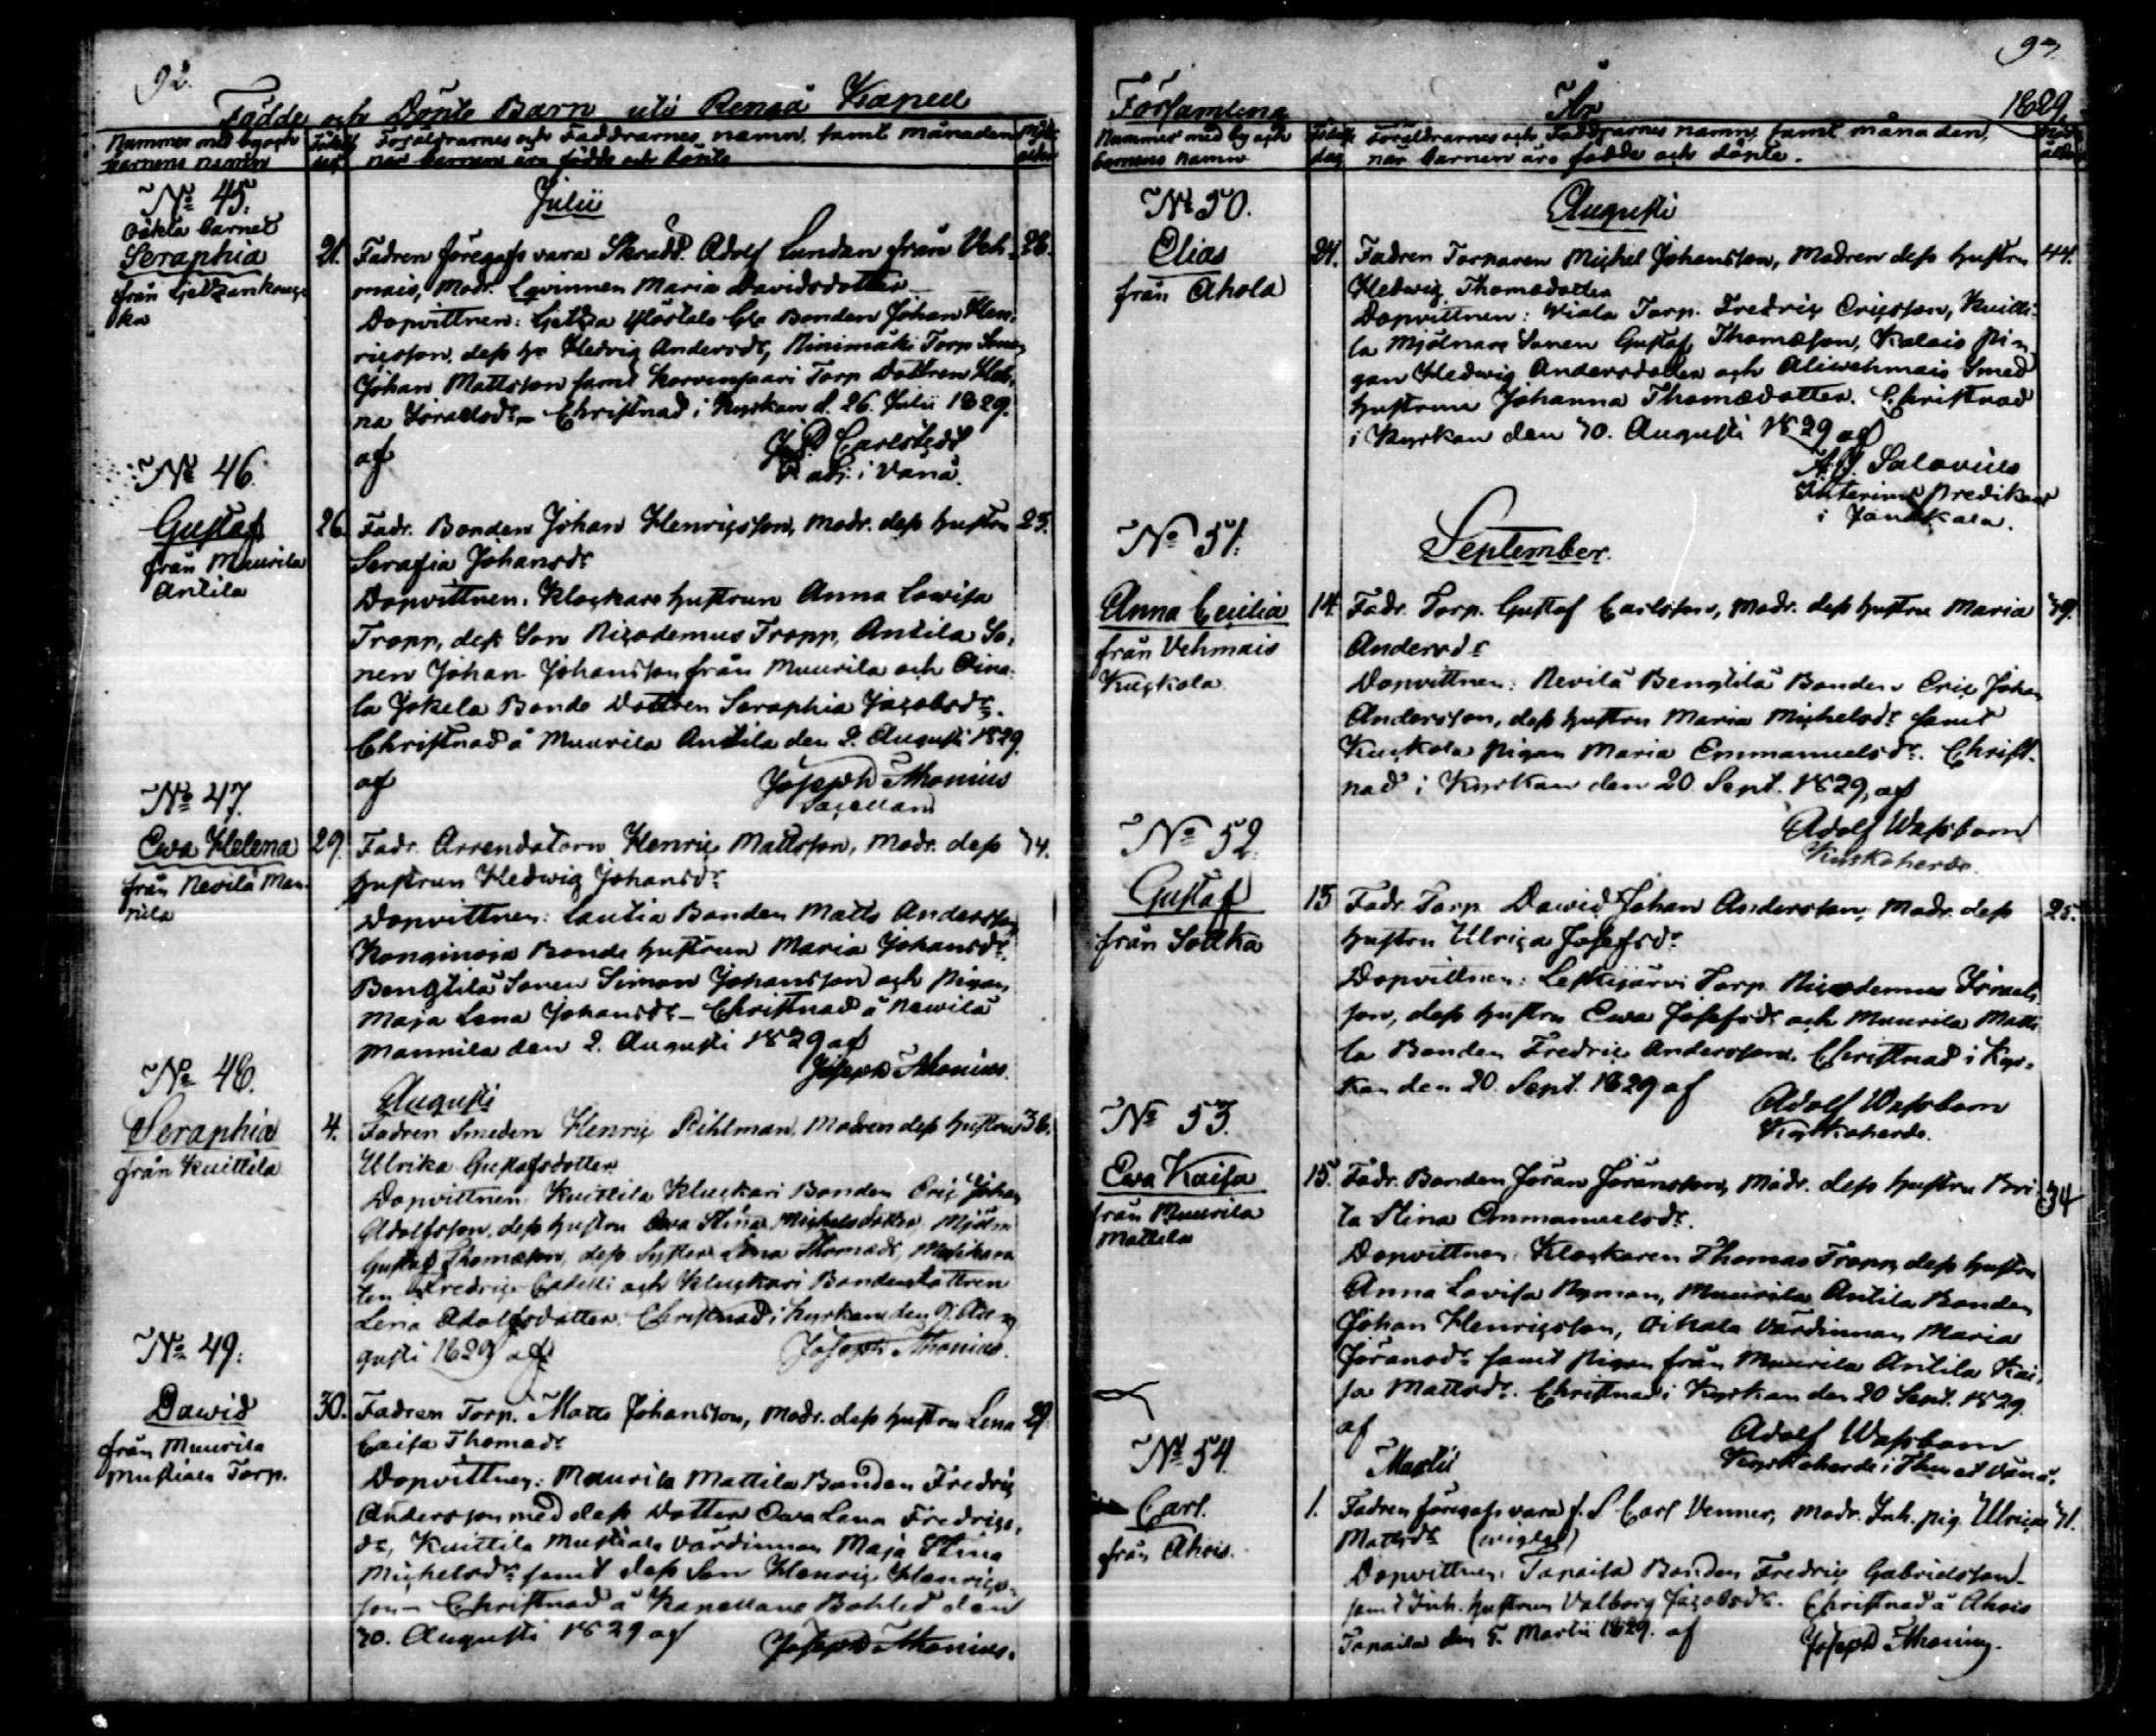 92.
Födde och Döpte Barn uti Rengå Kapell
Nummer med by och barnens namn
Födelse dag
Föräldrarnes och Faddrarnes namn, samt månaden när barnen äro födde och döpte
Julii
N:o 45.
oäkta barnet
Seraphia
från
21. Fadren föregafs vara Skradd. Adolf Lundan från Veh- 26.
mais, Modr. Qvinnan Maria Davidsdotter
Dopvittnen: Bonden Johan Hen-
ricsson, dess h. Hedvig Andersdr, Niinimäki Torp Sonen
Johan Mattsson samt Korvensaari Torp Dottren Hele-
na Israelsdr. Christnad i Kyrkan d. 26. Julii 1829.
af
Carlstedt
adj. i Vånå.
N:o 46.
Gustaf
från Muurila
Antila
26. Fadr. Bonden Johan Henricsson, Modr. dess hustru 25.
Serafia Johansdr
Dopvittnen. Klockare hustrun Anna Lowisa
Tropp, dess Son Nicodemus Tropp, Antila So-
nen Johan Johansson från Muurila och Oina-
la Jokela Bonde Dottren Seraphia Jacobsdr.
Christnad å Muurila Antila den 2. Augusti 1829.
af
Joseph Thonius
Sacellan
N:o 47.
Ewa Helena
från Nevilä Man-
nila
29. Fadr. Arrendatorn Henric Mattsson, Modr. dess 34.
hustrun Hedwig Johansdr
Dopvittnen: Lautia Bonden Matts Andersson
Bonde hustrun Maria Johansdr.
Bengtilä Sonen Simon Johansson och Pigan
Maja Lena Johansdr. Christnad å Newilä
Mannila den 2. Augusti 1829 af
Joseph Thonius.
Augusti
N:o 48.
Seraphia
från Kuittila
4. Fadren Smeden Henric Rihlman, Modren dess hustru 36.
Ulrika Gustafsdotter
Dopvittnen. Kuittila Kluckari Bonden Eric Johan
Adolfsson, dess hustru Ewa Stina Michelsdotter, Mjöln.
Gustaf Thomasson, dess Syster Lena Thomasdr,
ten Fredric och Kluckari Bondedottren
Lena Adolfsdotter. Christnad i kyrkan den 9. Au-
gusti 1829 af
Joseph Thonius.
N:o 49.
Dawid
från Muurila
Mustiala Torp.
30. Fadren Torp. Matts Johansson, Modr. dess hustru Lena 29.
Caisa Thomadr
Dopvittnen: Muurila Mattila Bonden Fredric
Andersson med dess Dotter Ewa Lena Fredrics-
dr, Kuittila Mustiala Värdinnan Maja Stina
Michelsdr samt dess Son Henric Henrics-
son – Christnad å Kapellans Bohled den
30. Augusti 1829 af
Joseph Thonius.
93.
Församling
År
1829.
Nummer med by och barnens namn
Födelse dag
Föräldrarnes och Faddrarnes namn, samt månaden, när barnen äro födde och döpte.
Augusti
N:o 50.
Elias
från Ahola
24. Fadren Torparen Michel Johansson, Modren dess hustru 44.
Hedwig Thomadotter
Dopvittnen: Viala Torp. Fredric Ericsson, Kuitti-
la Mjölnare Sonen Gustaf Thomasson, Kalais Pi-
gan Hedwig Andersdotter och Aliwehmais Smed
hustrun Johanna Thomædotter. Christnad
i Kyrkan den 30. Augusti 1829 af
A. J. Salovius
Interims Predikant
i Janakkala.
September.
N:o 51.
Anna Cecilia
från Vehmais
Kuckola
14. Fadr. Torp. Gustaf Carlsson, Modr. dess hustru Maria 39.
Andersdr
Dopvittnen: Nevilä Bengtilä Bonden Eric Johan
Andersson, dess hustru Maria Michelsdr samt
Kuckola Pigan Maria Emmanuelsdr. Christ-
nad i Kyrkan den 20. Sept. 1829, af
Adolf Wassbom
Kyrkoherde.
N:o 52.
Gustaf
från Sotka
15 Fadr. Torp. Dawid Johan Andersson, Modr. dess 25.
hustru Ulrica Josefsdr
Dopvittnen: Leskijärvi Torp. Nicodemus Israels-
son, dess hustru Ewa Josefsdr och Muurila Matti-
la Bonden Fredric Andersson. Christnad i Kyr-
kan den 20. Sept. 1829 af
Adolf Wassbom
Kyrkoherde.
N:o 53.
Ewa Kaisa
från Muurila
Mattila
15. Fadr. Bonden Jöran Jöransson, Modr. dess hustru Bri- 34
ta Stina Emmanuelsdr.
Dopvittnen: Klockaren Thomas Tropp, dess hustru
Anna Lovisa Nyman, Muurila Antila Bonden
Johan Henricsson, Oikala Värdinnan Maria
Jöransdr samt Pigan från Muurila Antila Kai-
sa Mattsdr. Christnad i Kyrkan den 20 Sept. 1829.
af
Adolf Wassbom
Kyrkoherde i Thus et Vånå.
Martii
N:o 54.
Carl.
från Ahois.
1. Fadren föregafs vara f. S. Carl Venner, Modr. Inh. pig. Ulrica 31.
Mattsdr
Dopvittnen. Tapaila Bonden Fredric Gabrielsson
samt Inh. hustrun Valborg Jacobsdr. Christnad å Ahois
Tapaila den 5. Martii 1829. af
Joseph Thonius.